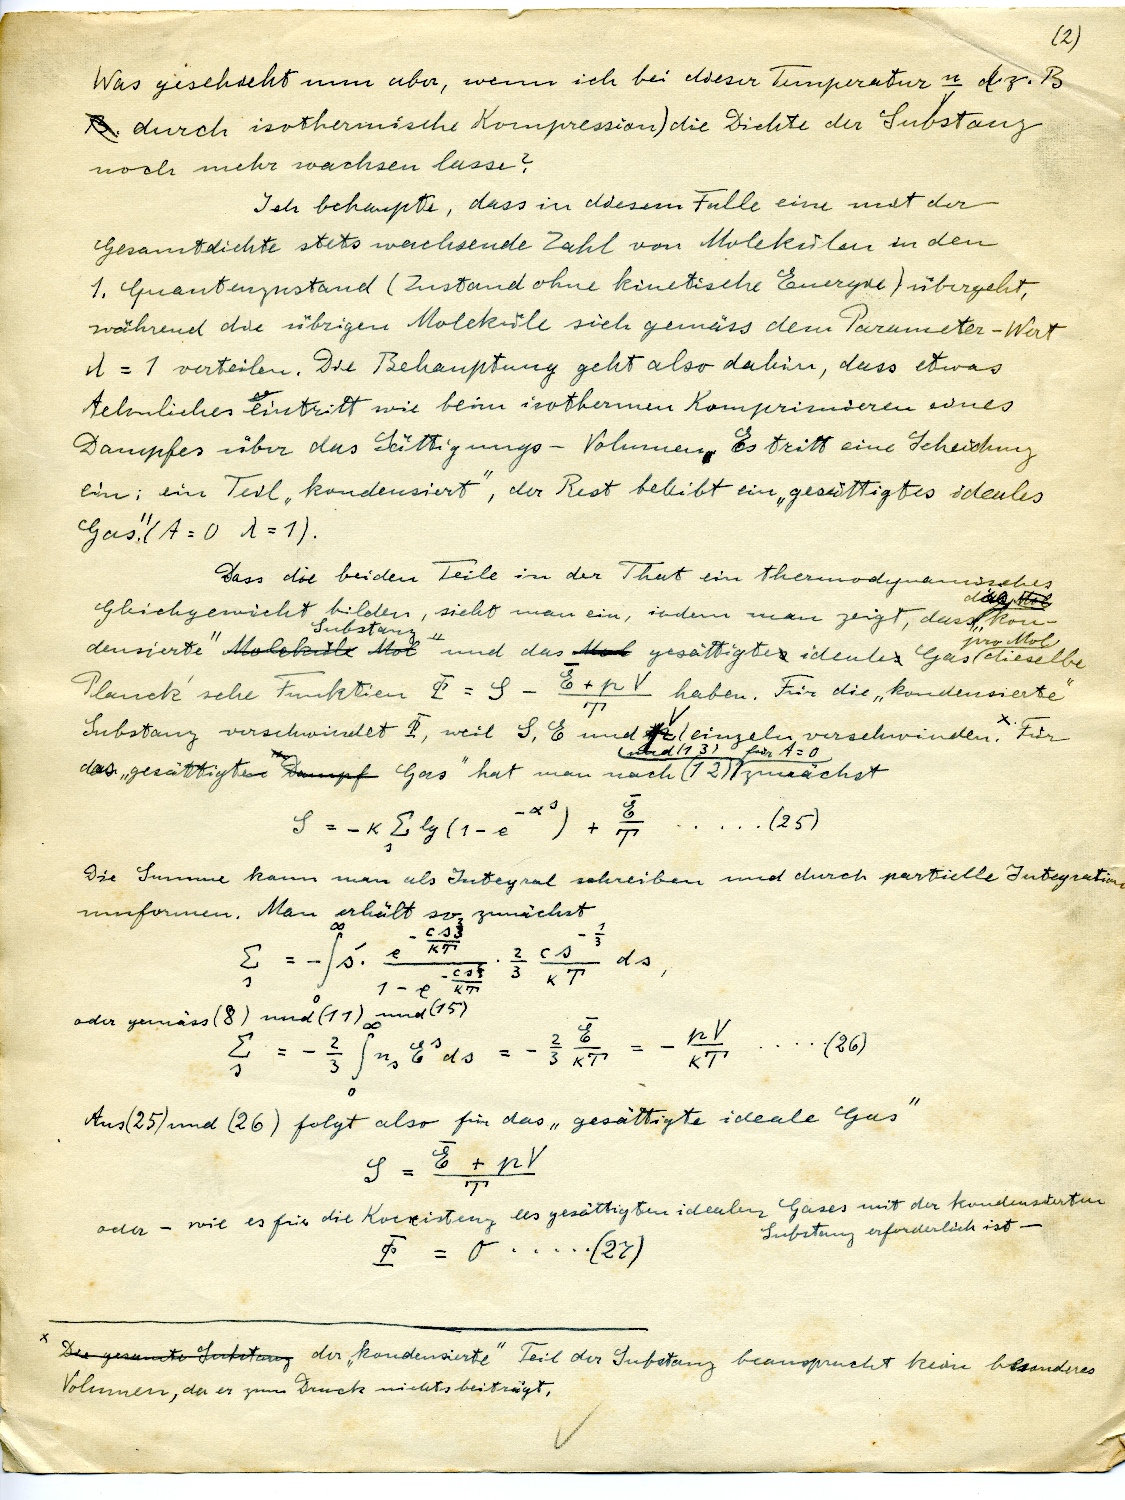 (2)
Was geschieht nun aber, wenn ich bei dieser Temperatur n (z. B
B. durch isothermische Kompression) die Dichte der Substanz
noch mehr wachsen lasse?
Ich behaupte, dass in diesem Falle eine mit der
Gesamtdichte stets wachsende Zahl von Molekülen in den
1. Quantenzustand (Zustand ohne kinetische Energie) übergeht,
während die übrigen Moleküle sich gemäss dem Parameter-Wert
λ = 1 verteilen. Die Behauptung geht also dahin, dass etwas
Aehnliches eintritt wie beim isothermen Komprimieren eines
Dampfes über das Sättigungs-Volumen. Es tritt eine Scheidung
ein; ein Teil „kondensiert", der Rest bleibt ein „gesättigtes ideales
Gas". (A = 0 λ = 1).
Dass die beiden Teile in der That ein thermodynamisches
Gleichgewicht bilden, sieht man ein, indem man zeigt, dass die „kon-
densierte" Moleküle Mol Substanz" und das Mol gesättigte ideale Gas pro Mol dieselbe
Planck'sche Funktion Φ = S − (Ē + pV)/T haben. Für die „kondensierte"
Substanz verschwindet Φ, weil S, E und V einzeln verschwinden.ˣ Für
das „gesättigte Dampf Gas" hat man nach (12) und (13) für A = 0 zunächst
S = −κ Σₛ lg(1 − e^(−αˢ)) + Ē/T . . . . . (25)
Die Summe kann man als Integral schreiben und durch partielle Integration
umformen. Man erhält so zunächst
Σₛ = −∫₀^∞ s · e^(−cs^(2/3)/κT) / (1 − e^(−cs^(2/3)/κT)) · 2/3 cs^(−1/3)/κT ds,
oder gemäss (8) und (11) und (15)
Σₛ = − 2/3 ∫₀^∞ nₛ Eˢ ds = − 2/3 Ē/κT = − pV/κT . . . . (26)
Aus (25) und (26) folgt also für das „gesättigte ideale Gas"
S = (Ē + pV)/T
oder − wie es für die Koexistenz des gesättigten idealen Gases mit der kondensierten
Substanz erforderlich ist −
Φ = 0 . . . . . (27)
ˣ Die gesamte Substanz der „kondensierte" Teil der Substanz beansprucht kein besonderes
Volumen, da er zum Druck nichts beiträgt.